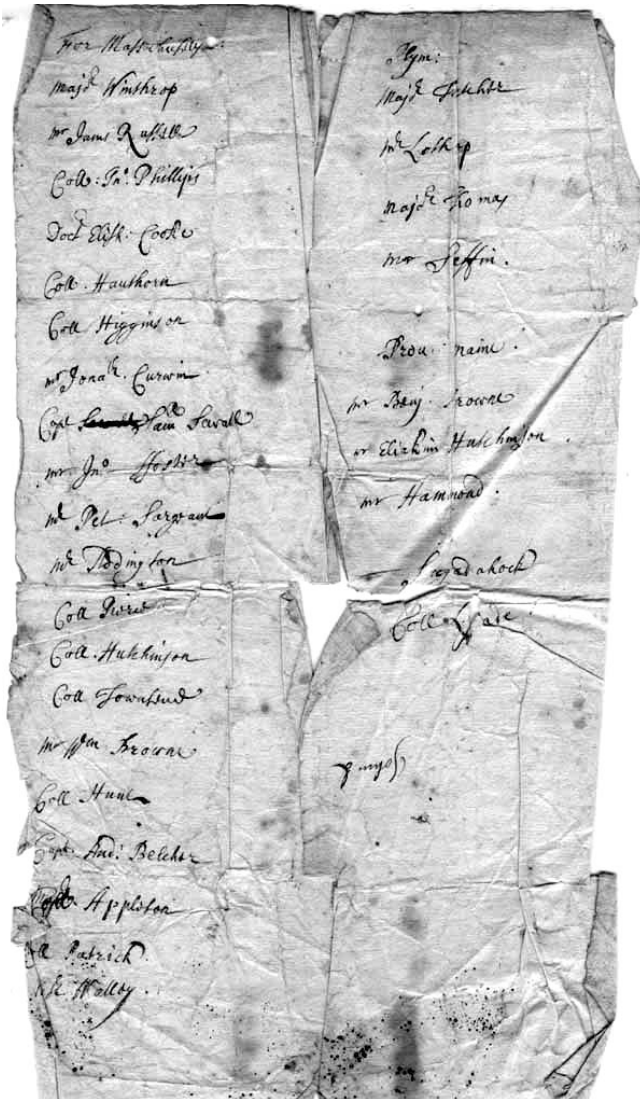 For Massachusetts:
Majr Winthrop
mr Jams Russell
Coll: Jno. Phillips
Doctr Elish. Cooke
Coll. Hauthorn
Coll Higginson
mr Jonath. Curwin
Capt Samll Sewall
mr. Jno Ffoster
mr Pet: Sargeant
mr Addington
Coll Peirce
Coll. Hutchinson
Coll Townsend
mr Wm Browne
Coll Hunt
Capt. And: Belcher
Appleton
Patrick
Walley.
Plym:
Majr
mr Lothrop
Majr Thomas
mr
Prov: maine:
mr Benj. Browne
mr Eliakim Hutchinson.
mr Hammond.
Sagadahock
Coll